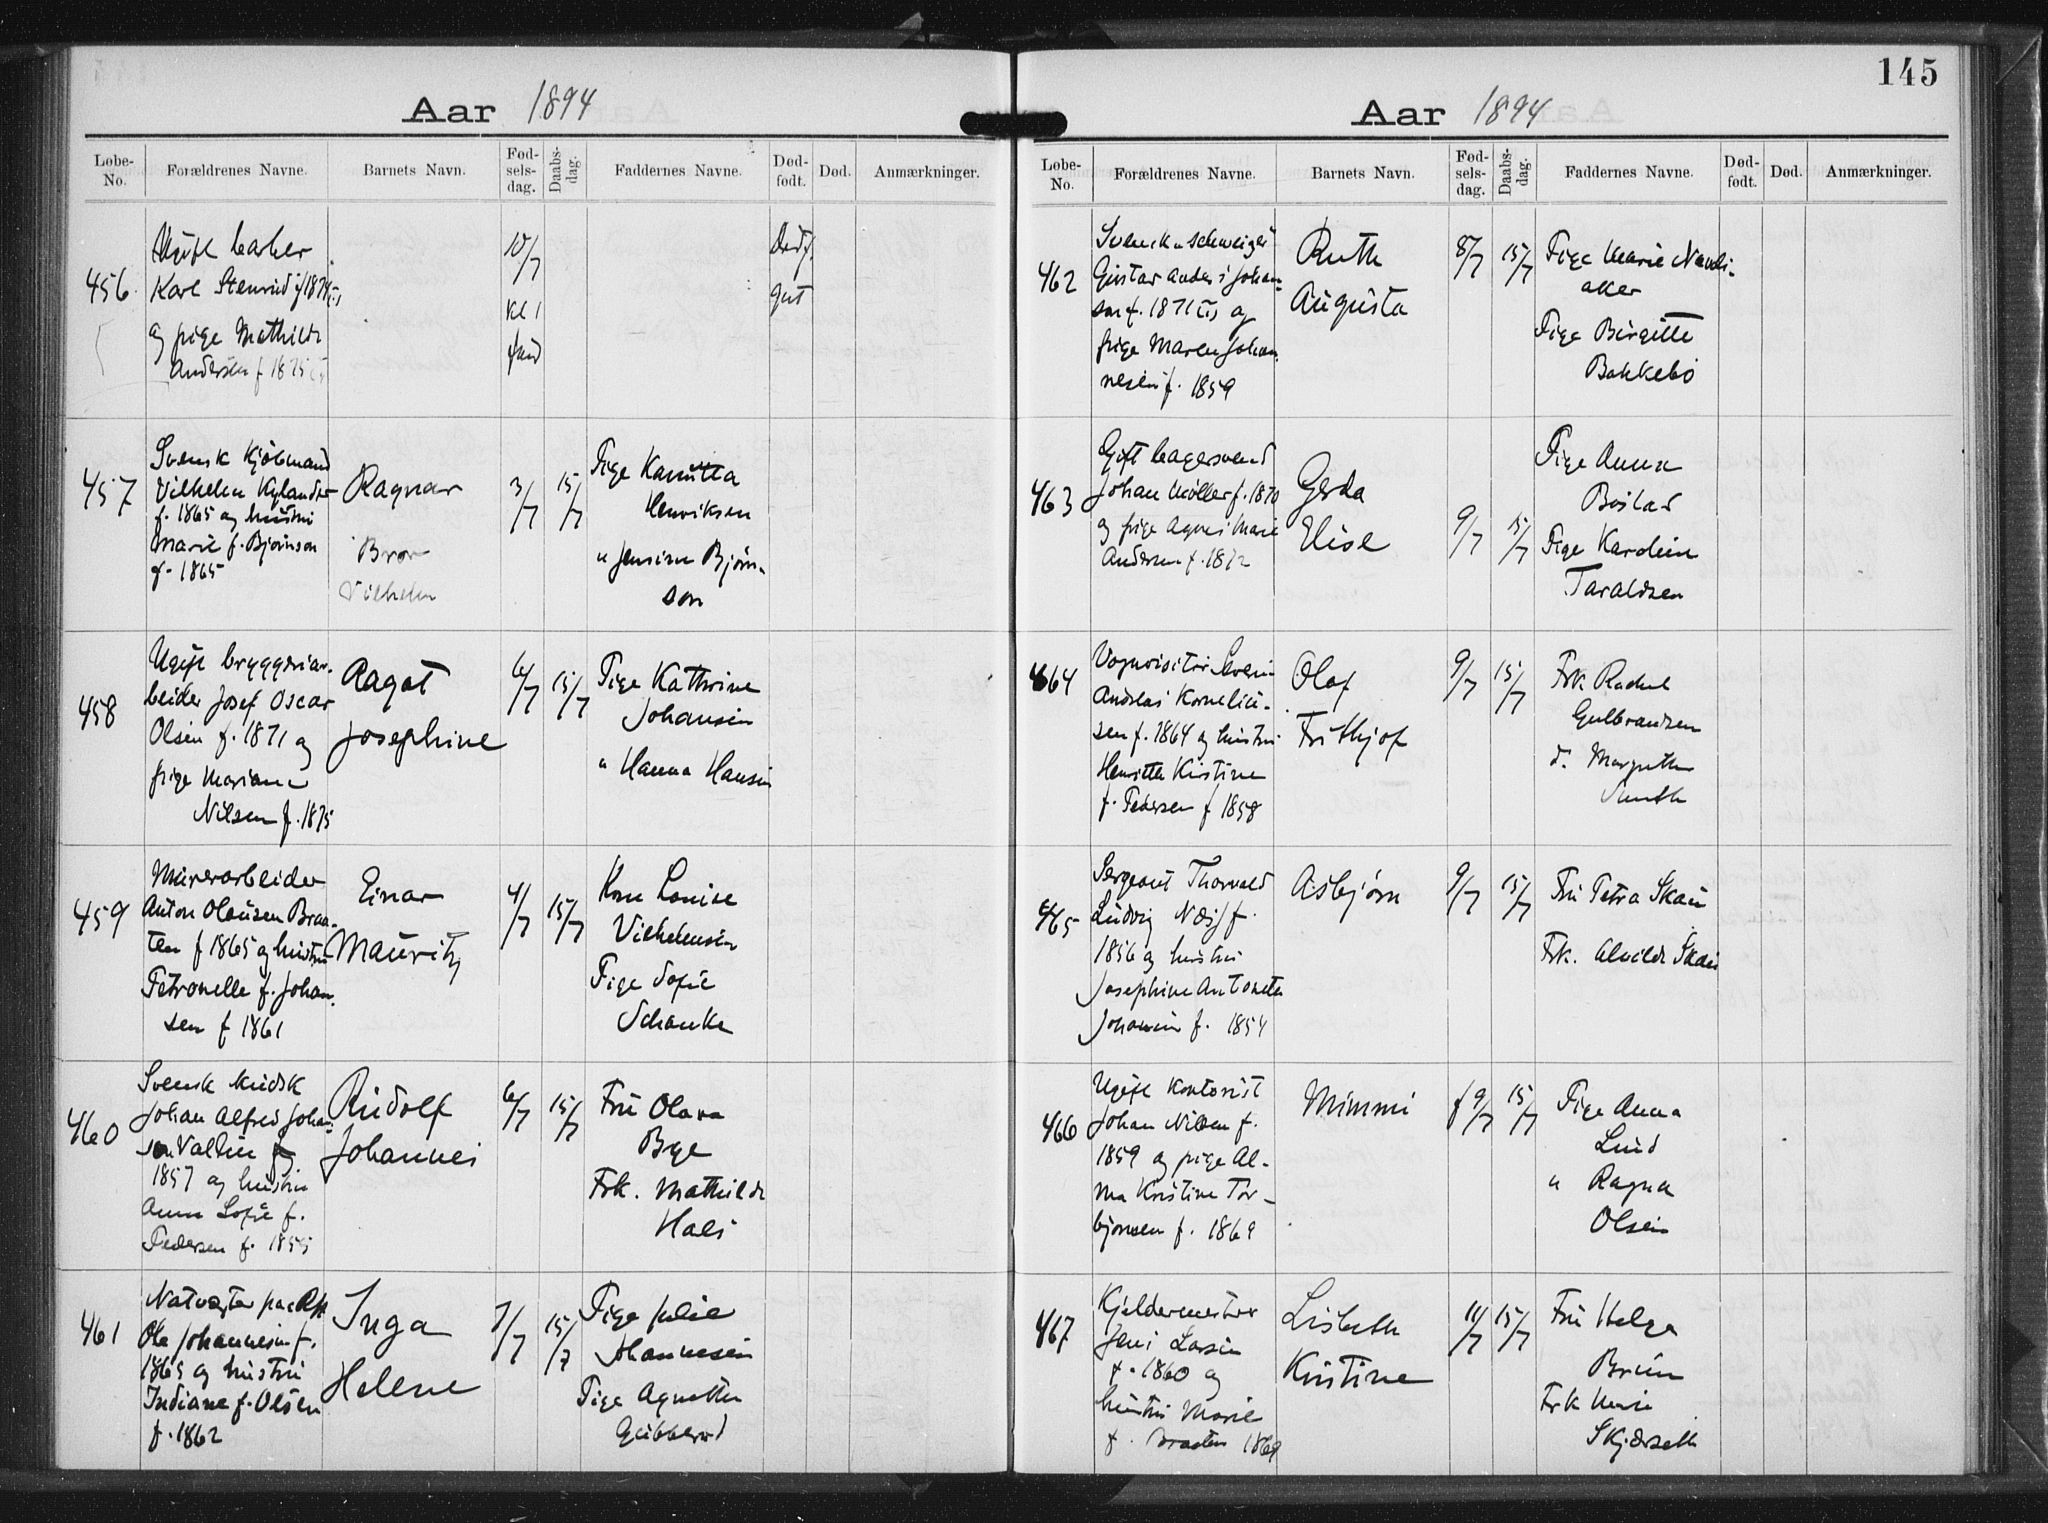 Aar 1894
Løbe-No. Forældrenes Navne. Barnets Navn. Fød-sels-dag. Daabs-dag. Faddernes Navne. Død-født. Død. Anmærkninger.
456
Ugift barber
Karl Stenrud f 1874
og pige Mathilde
Andersen f 1875
10/7
kl 1
Dødf.
gut
457
Svensk Kjøbmand
Vilhelm Kylander
f. 1865 og hustru
Marie f. Bjørnson
f. 1865
Ragnar
Bror
Vilhelm
3/7
15/7
Pige Kamilla
Henriksen
" Jensine Bjørn-
son
458
Ugift bryggeriar-
beider Josef Oscar
Olsen f. 1871 og
pige Mariane
Nilsen f. 1875
Ragot
Josephine
6/7
15/7
Pige Kathrine
Johansen
" Hanna Hansen
459
Murerarbeider
Anton Olausen Braa-
ten f 1865 og hustru
Petronelle f. Johan-
sen f 1861
Einar
Mauritz
4/7
15/7
Kone Louise
Vilhelmsen
Pige Sofie
Schanke
460
Svensk
Johan Alfred Johan-
son Vallin
1857 og hustru
Anna Sofie f.
Pedersen f. 1855
Rudolf
Johannes
6/7
15/7
Fru Olava
Bye
Frk. Mathilde
Hals
461
Natvægter paa
Ole Johannesen f.
1865 og hustru
Indiane f. Olsen
f. 1862
Inga
Helene
7/7
15/7
Pige Julie
Johannesen
Pige Agnethe
Gubberud
145
Aar 1894
Løbe-No. Forældrenes Navne. Barnets Navn. Fød-sels-dag. Daabs-dag. Faddernes Navne. Død-født. Død. Anmærkninger.
462
Svensk schweizer
Gustav Anders Johan-
son f. 1871 og
pige Maren Johan-
nesen f. 1859
Ruth
Augusta
8/7
15/7
Pige Marie
aker
Pige Birgitte
Bakkebø
463
Gift bagersvend
Johan Møller f. 1870
og pige Agnes Marie
Andersen f. 1872
Gerda
Elise
9/7
15/7
Pige Anna
Bøstad
Pige Karoline
Taraldsen
464
Vognvisitør Severin
Andreas Korneliu-
sen f. 1864 og hustru
Henriette Kirstine
f. Pedersen f 1858
Olaf
Frithjof
9/7
15/7
Frk Rachel
Gulbrandsen
d. Margrethe
Smith
465
Sergeant Thorvald
Ludvig Næss f.
1856 og hustru
Josephine Antonette
Johansen f. 1854
Asbjørn
9/7
15/7
Fru Petra Skau
Frk. Alvilde Skau
466
Ugift Kontorist
Johan Nilsen f.
1859 og pige Al-
ma Kristine Tor-
bjørnsen f. 1869
Mimmi
f 9/7
15/7
Pige Anna
Lund
" Ragna
Olsen
467
Kjeldermester
Jens Larsen
f. 1860 og
hustru Marie
f. Braaten 1869
Lisbeth
Kristine
11/7
15/7
Fru Helga
Bruun
Frk Marie
Skjærseth